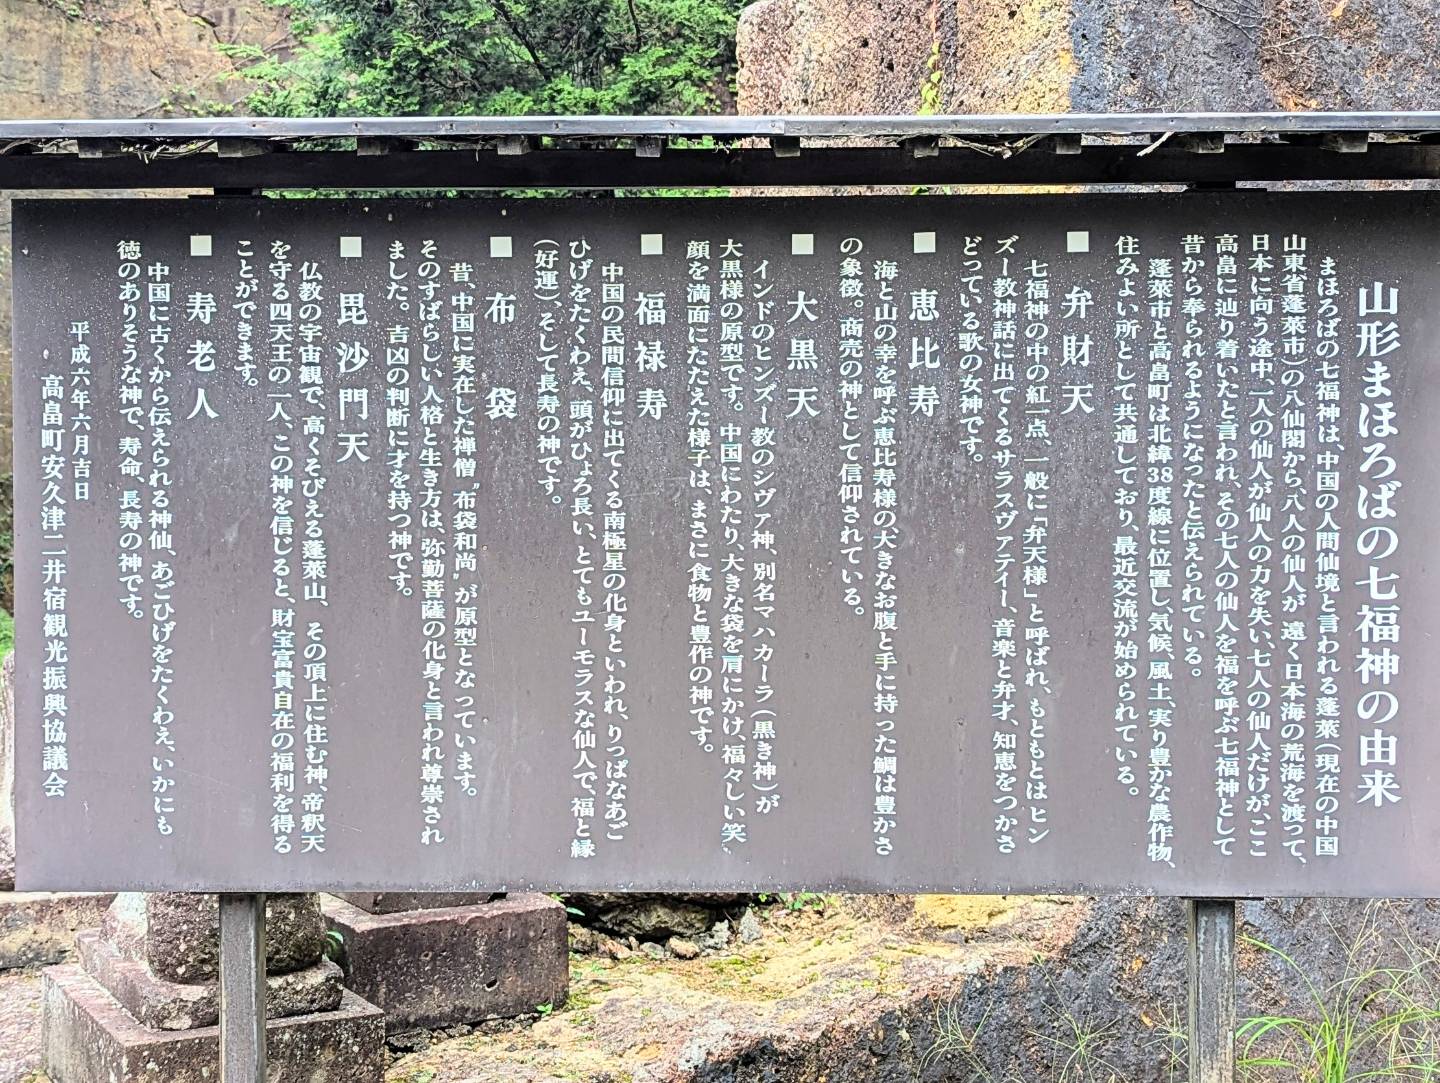 山形まほろばの七福神の由来
まほろばの七福神は、中国の人間仙境と言われる蓬萊(現在の中国
山東省蓬萊市)の八仙閣から、八人の仙人が遠く日本海の荒海を渡って、
日本に向う途中、一人の仙人が仙人の力を失い、七人の仙人だけが、ここ
高畠に辿り着いたと言われ、その七人の仙人を福を呼ぶ七福神として
昔から奉られるようになったと伝えられている。
蓬萊市と高畠町は北緯38度線に位置し、気候、風土、実り豊かな農作物、
住みよい所として共通しており、最近交流が始められている。
■弁財天
七福神の中の紅一点、一般に「弁天様」と呼ばれ、もともとはヒン
ズー教神話に出てくるサラスヴァティー、音楽と弁才、知恵をつかさ
どっている歌の女神です。
■恵比寿
海と山の幸を呼ぶ恵比寿様の、大きなお腹と手に持った鯛は豊かさ
の象徴。商売の神として信仰されている。
■大黒天
インドのヒンズー教のシヴァ神、別名マハカーラ(黒き神)が
大黒様の原型です。中国にわたり、大きな袋を肩にかけ、福々しい笑
顔を満面にたたえた様子は、まさに食物と豊作の神です。
■福禄寿
中国の民間信仰に出てくる南極星の化身といわれ、りっぱなあご
ひげをたくわえ、頭がひょろ長い、とてもユーモラスな仙人で、福と縁
(好運)、そして長寿の神です。
■布袋
昔、中国に実在した禅僧〝布袋和尚〟が原型となっています。
そのすばらしい人格と生き方は、弥勒菩薩の化身と言われ尊崇され
ました。吉凶の判断に才を持つ神です。
■毘沙門天
仏教の宇宙観で、高くそびえる蓬萊山、その頂上に住む神、帝釈天
を守る四天王の一人、この神を信じると、財宝富貴自在の福利を得る
ことができます。
■寿老人
中国に古くから伝えられる神仙、あごひげをたくわえ、いかにも
徳のありそうな神で、寿命、長寿の神です。
平成六年六月吉日
高畠町安久津二井宿観光振興協議会